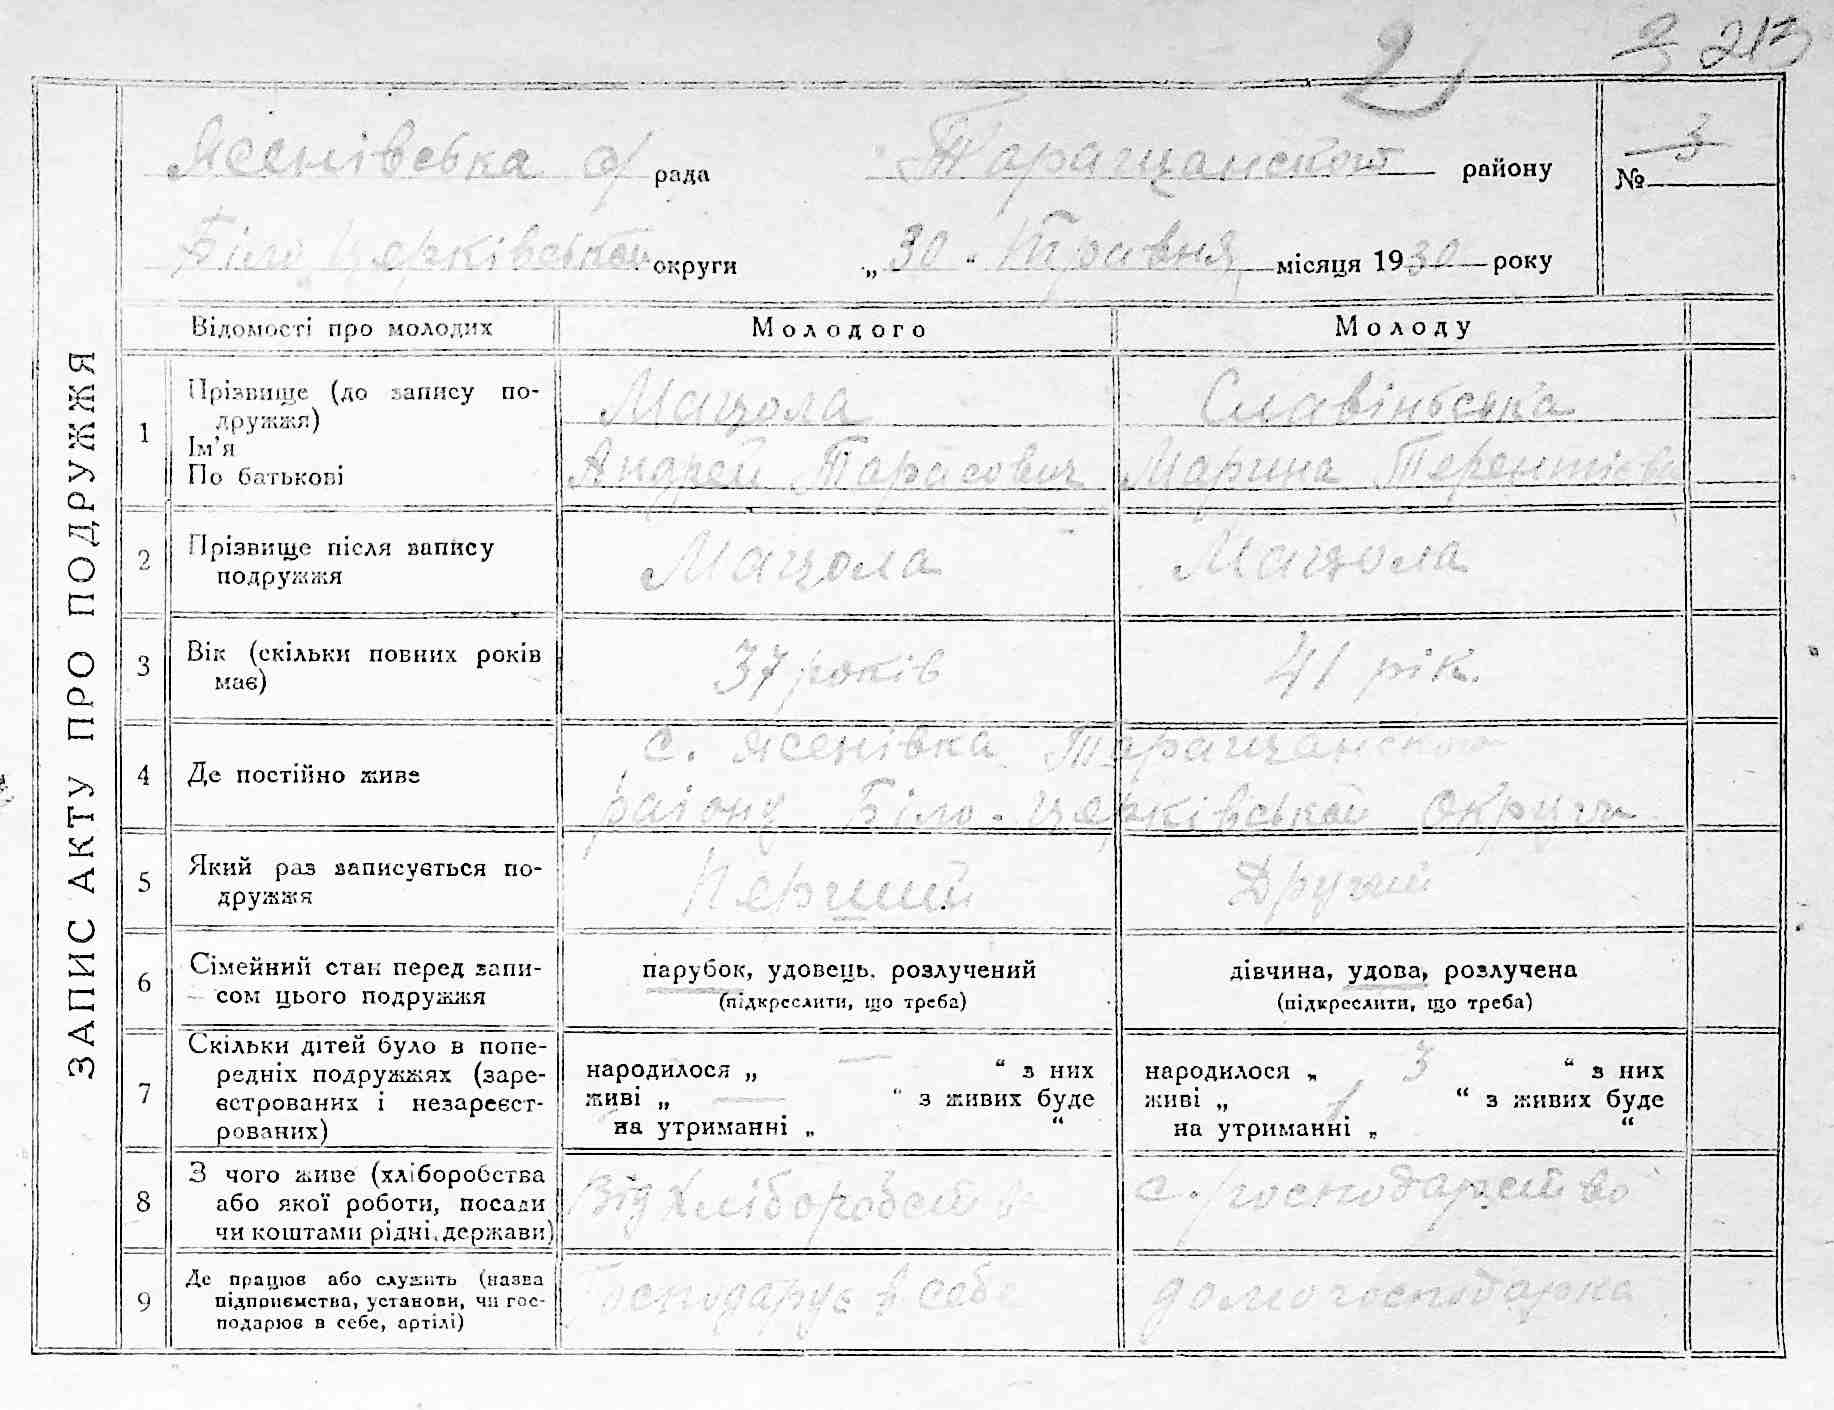 2
3 213
ЗАПИС АКТУ ПРО ПОДРУЖЖЯ
Ясенівська с/рада Таращанскої району
№ 3
Біло Церківської округи „30“ Травня місяця 1930 року
Відомості про молодих Молодого Молоду
1 Прізвище (до запису по-
дружжя)
Ім'я
По батькові
Мацола
Андрей Тарасович
Славіньська
Марина Терентієв
2 Прізвище після запису
подружжя
Мацола Мацола
3 Вік (скільки повних років
має)
37 років 41 рік.
4 Де постійно живе
с. Ясенівка Таращанської
раіону Біло-Церківської округи
5 Який раз записується по-
дружжя
Перший Другий
6 Сімейний стан перед запи-
сом цього подружжя
парубок, удовець, розлучений
(підкреслити, що треба)
дівчина, удова, розлучена
(підкреслити, що треба)
7 Скільки дітей було в попе-
редніх подружжях (заре-
єстрованих і незареєст-
рованих)
народилося „ — “ з них
живі „ — “ з живих буде
на утриманні „ “
народилося „ 3 “ з них
живі „ 1 “ з живих буде
на утриманні „ “
8 З чого живе (хліборобства
або якої роботи, посади
чи коштами рідні, держави)
Від Хліборобств
с. господарство
9 Де працює або служить (назва
підприємства, установи, чи гос-
подарює в себе, артілі)
Господарує в себе
домогосподарка